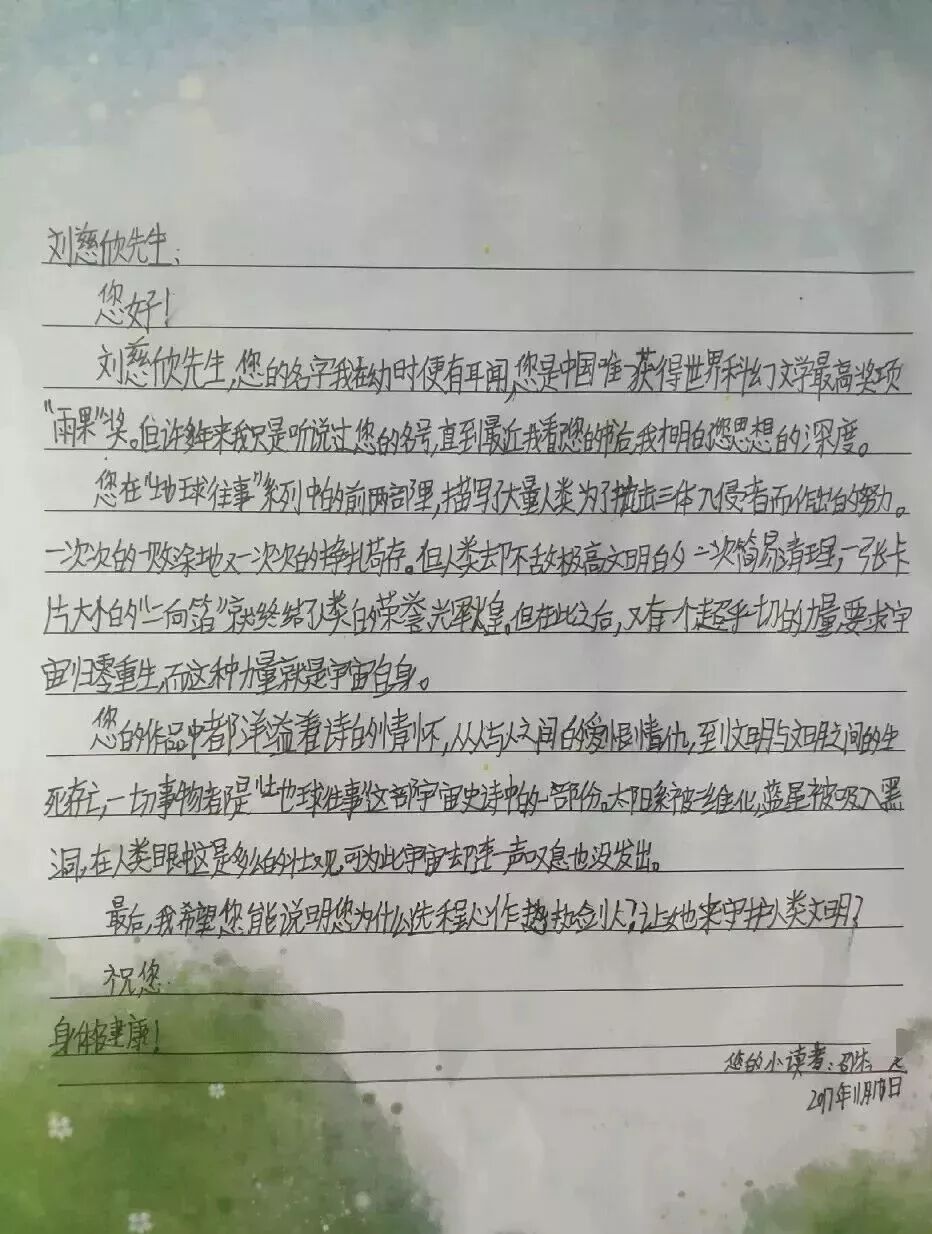 刘慈欣先生：
您好！
刘慈欣先生，您的名字我在幼时便有耳闻，您是中国唯一获得世界科幻文学最高奖项
“雨果”奖。但许多年来我只是听说过您的名号，直到最近我看您的书后，我才明白您思想的深度。
您在“地球往事”系列中的前两部里，描写了大量人类为了抗击三体入侵者而作出的努力。
一次次的一败涂地又一次次的挣扎苟存。但人类却不敌极高文明的一次简易清理，一张卡
片大小的“二向箔”就终结了人类的荣誉光辉煌。但在此之后，又有一个超乎一切的力量要求宇
宙归零重生，而这种力量就是宇宙自身。
您的作品中都洋溢着诗的情怀，从人与人之间的爱恨情仇，到文明与文明之间的生
死存亡，一切事物都是“地球往事”这部宇宙史诗中的一部份。太阳系被二维化，蓝星被吸入黑
洞，在人类眼中这是多么的壮观，可为此宇宙却连一声叹息也没发出。
最后，我希望您能说明您为什么选程心作执剑人？让她来守护人类文明？
祝您
身体健康！
您的小读者：
2017年11月